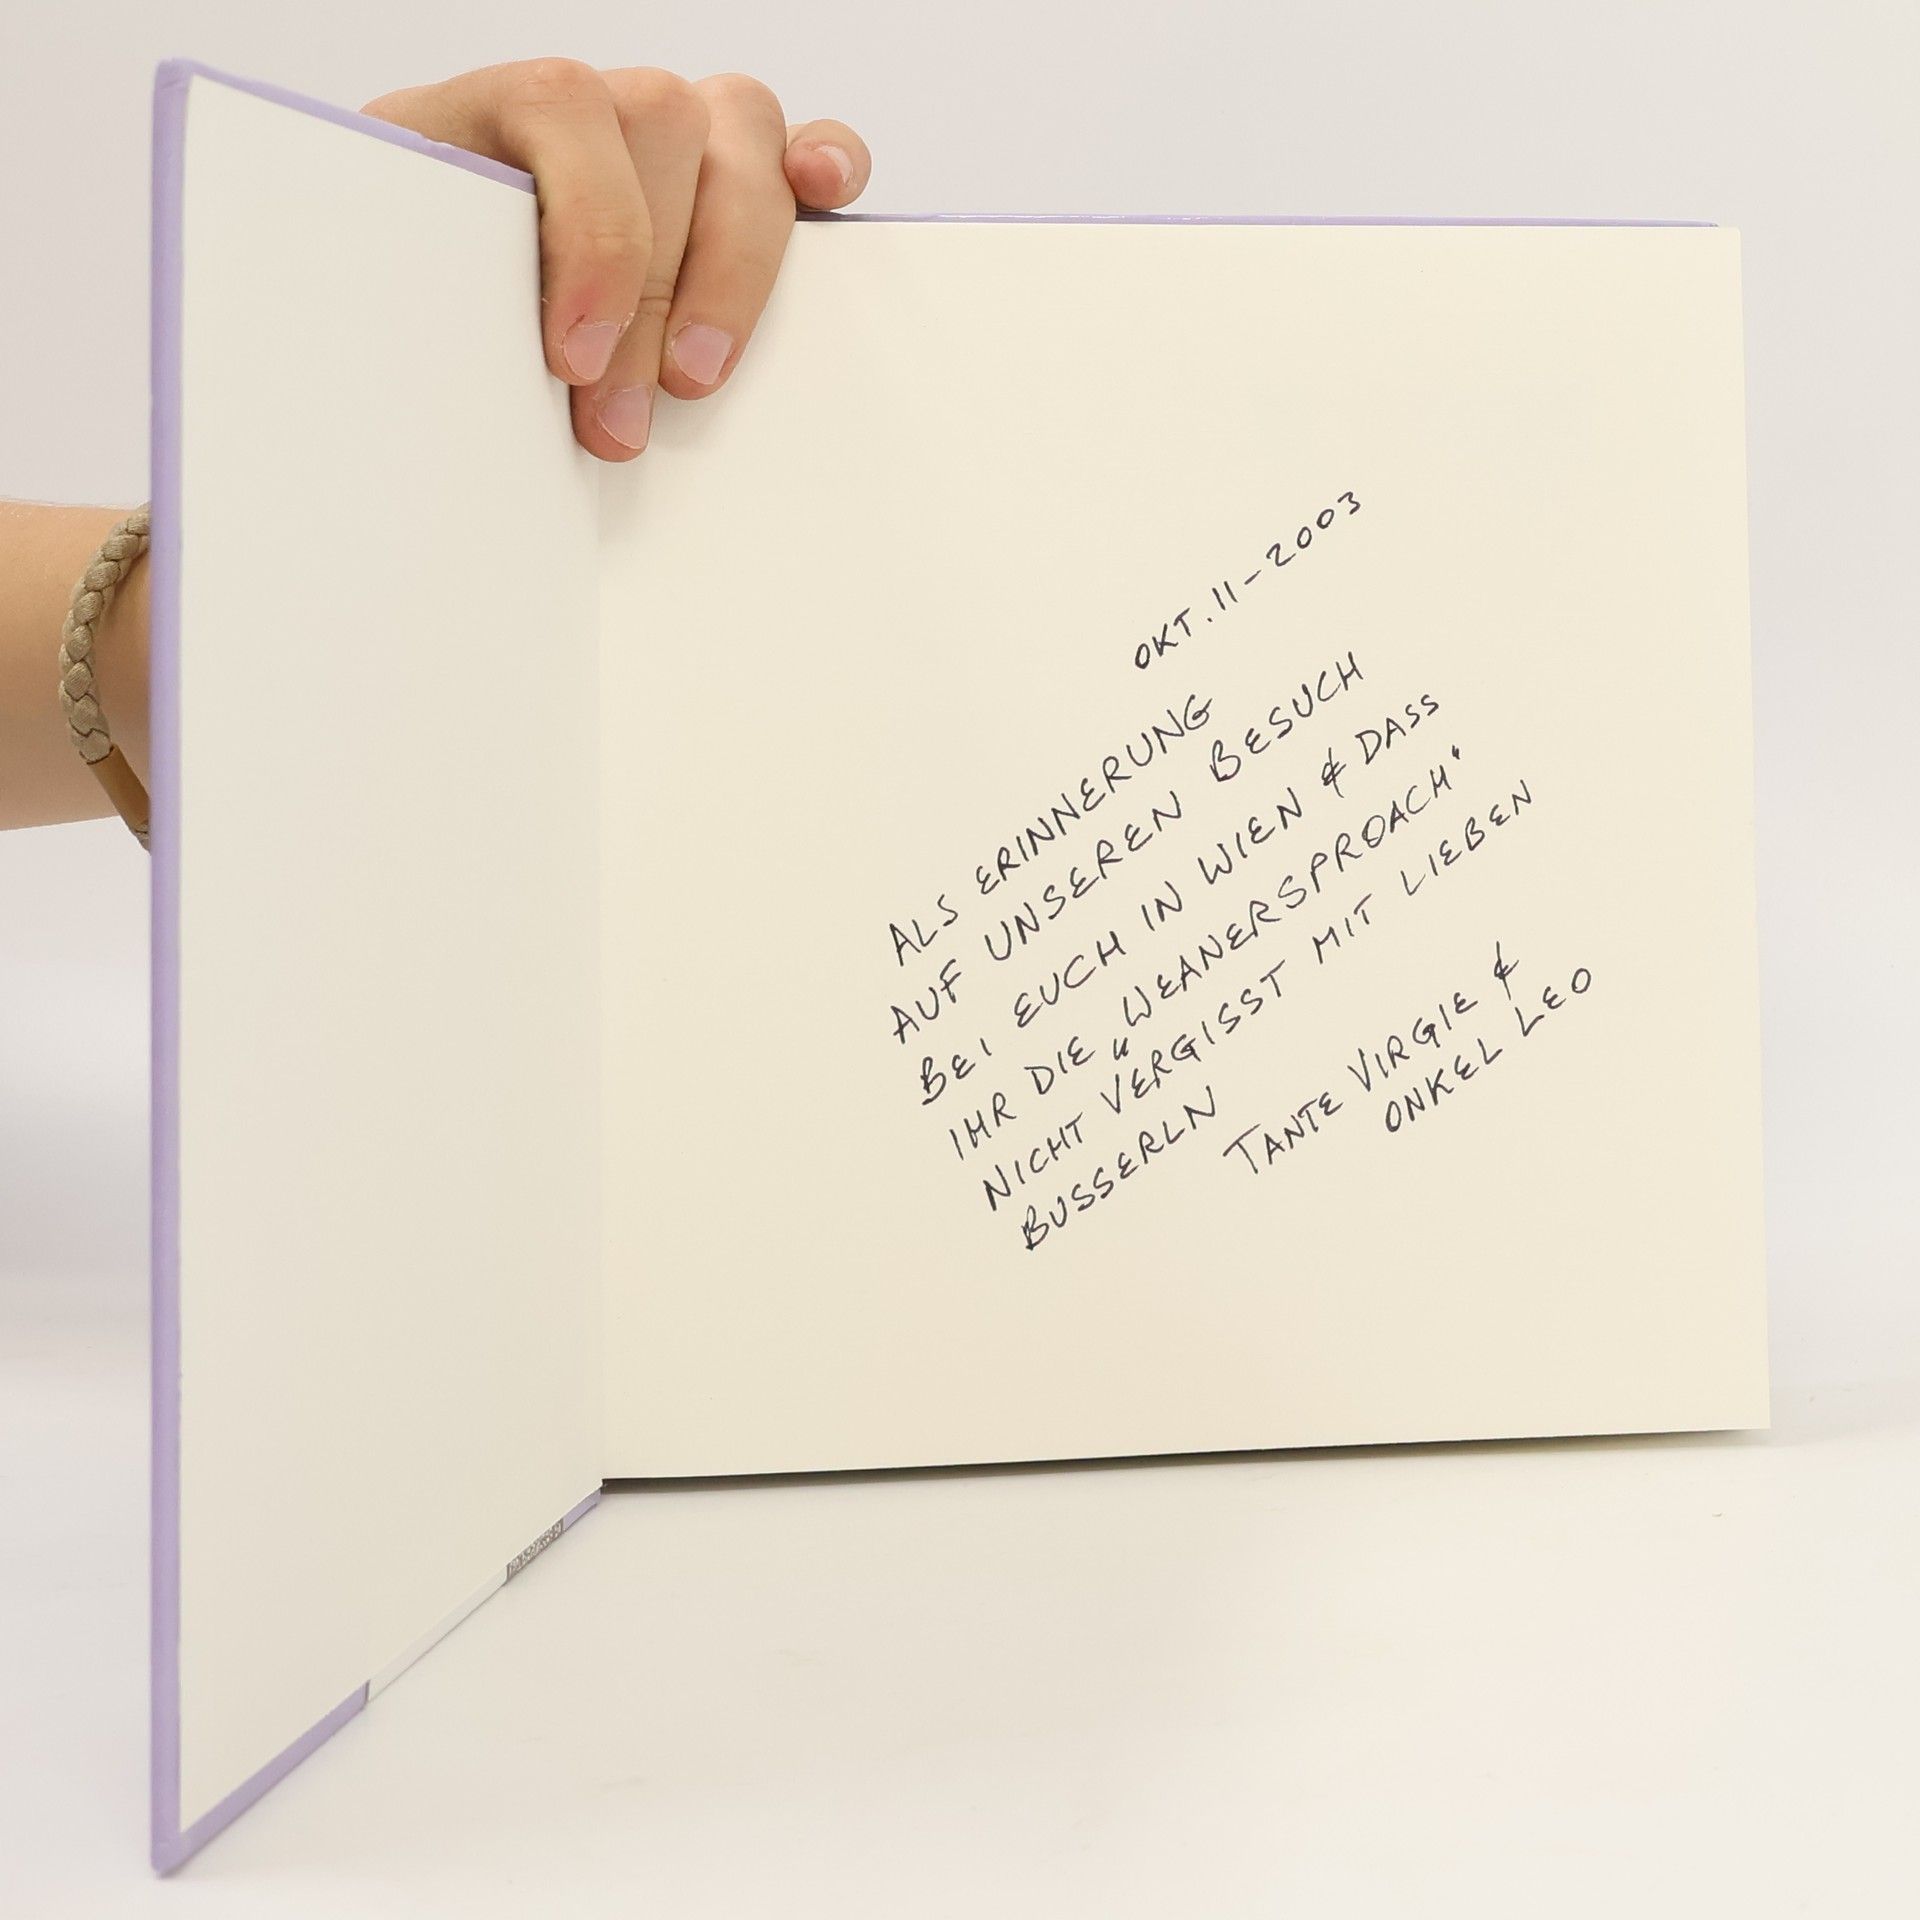 OKT. 11 - 2003
ALS ERINNERUNG
AUF UNSEREN BESUCH
BEI EUCH IN WIEN & DASS
IHR DIE „WEANERSPROACH“
NICHT VERGISST MIT LIEBEN
BUSSERLN
TANTE VIRGIE &
ONKEL LEO